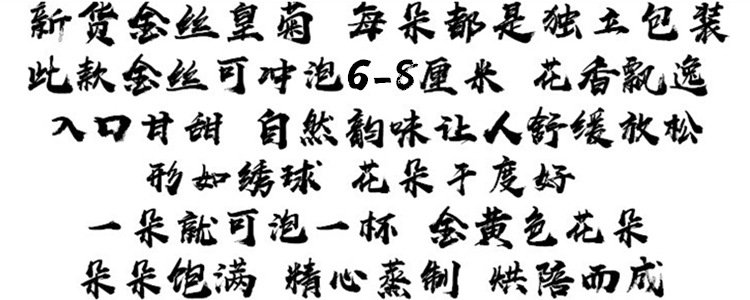 新货金丝皇菊 每朵都是独立包装
此款金丝可冲泡6-8厘米 花香飘逸
入口甘甜 自然韵味让人舒缓放松
形如绣球 花朵干度好
一朵就可泡一杯 金黄色花朵
朵朵饱满 精心蒸制 烘陪而成